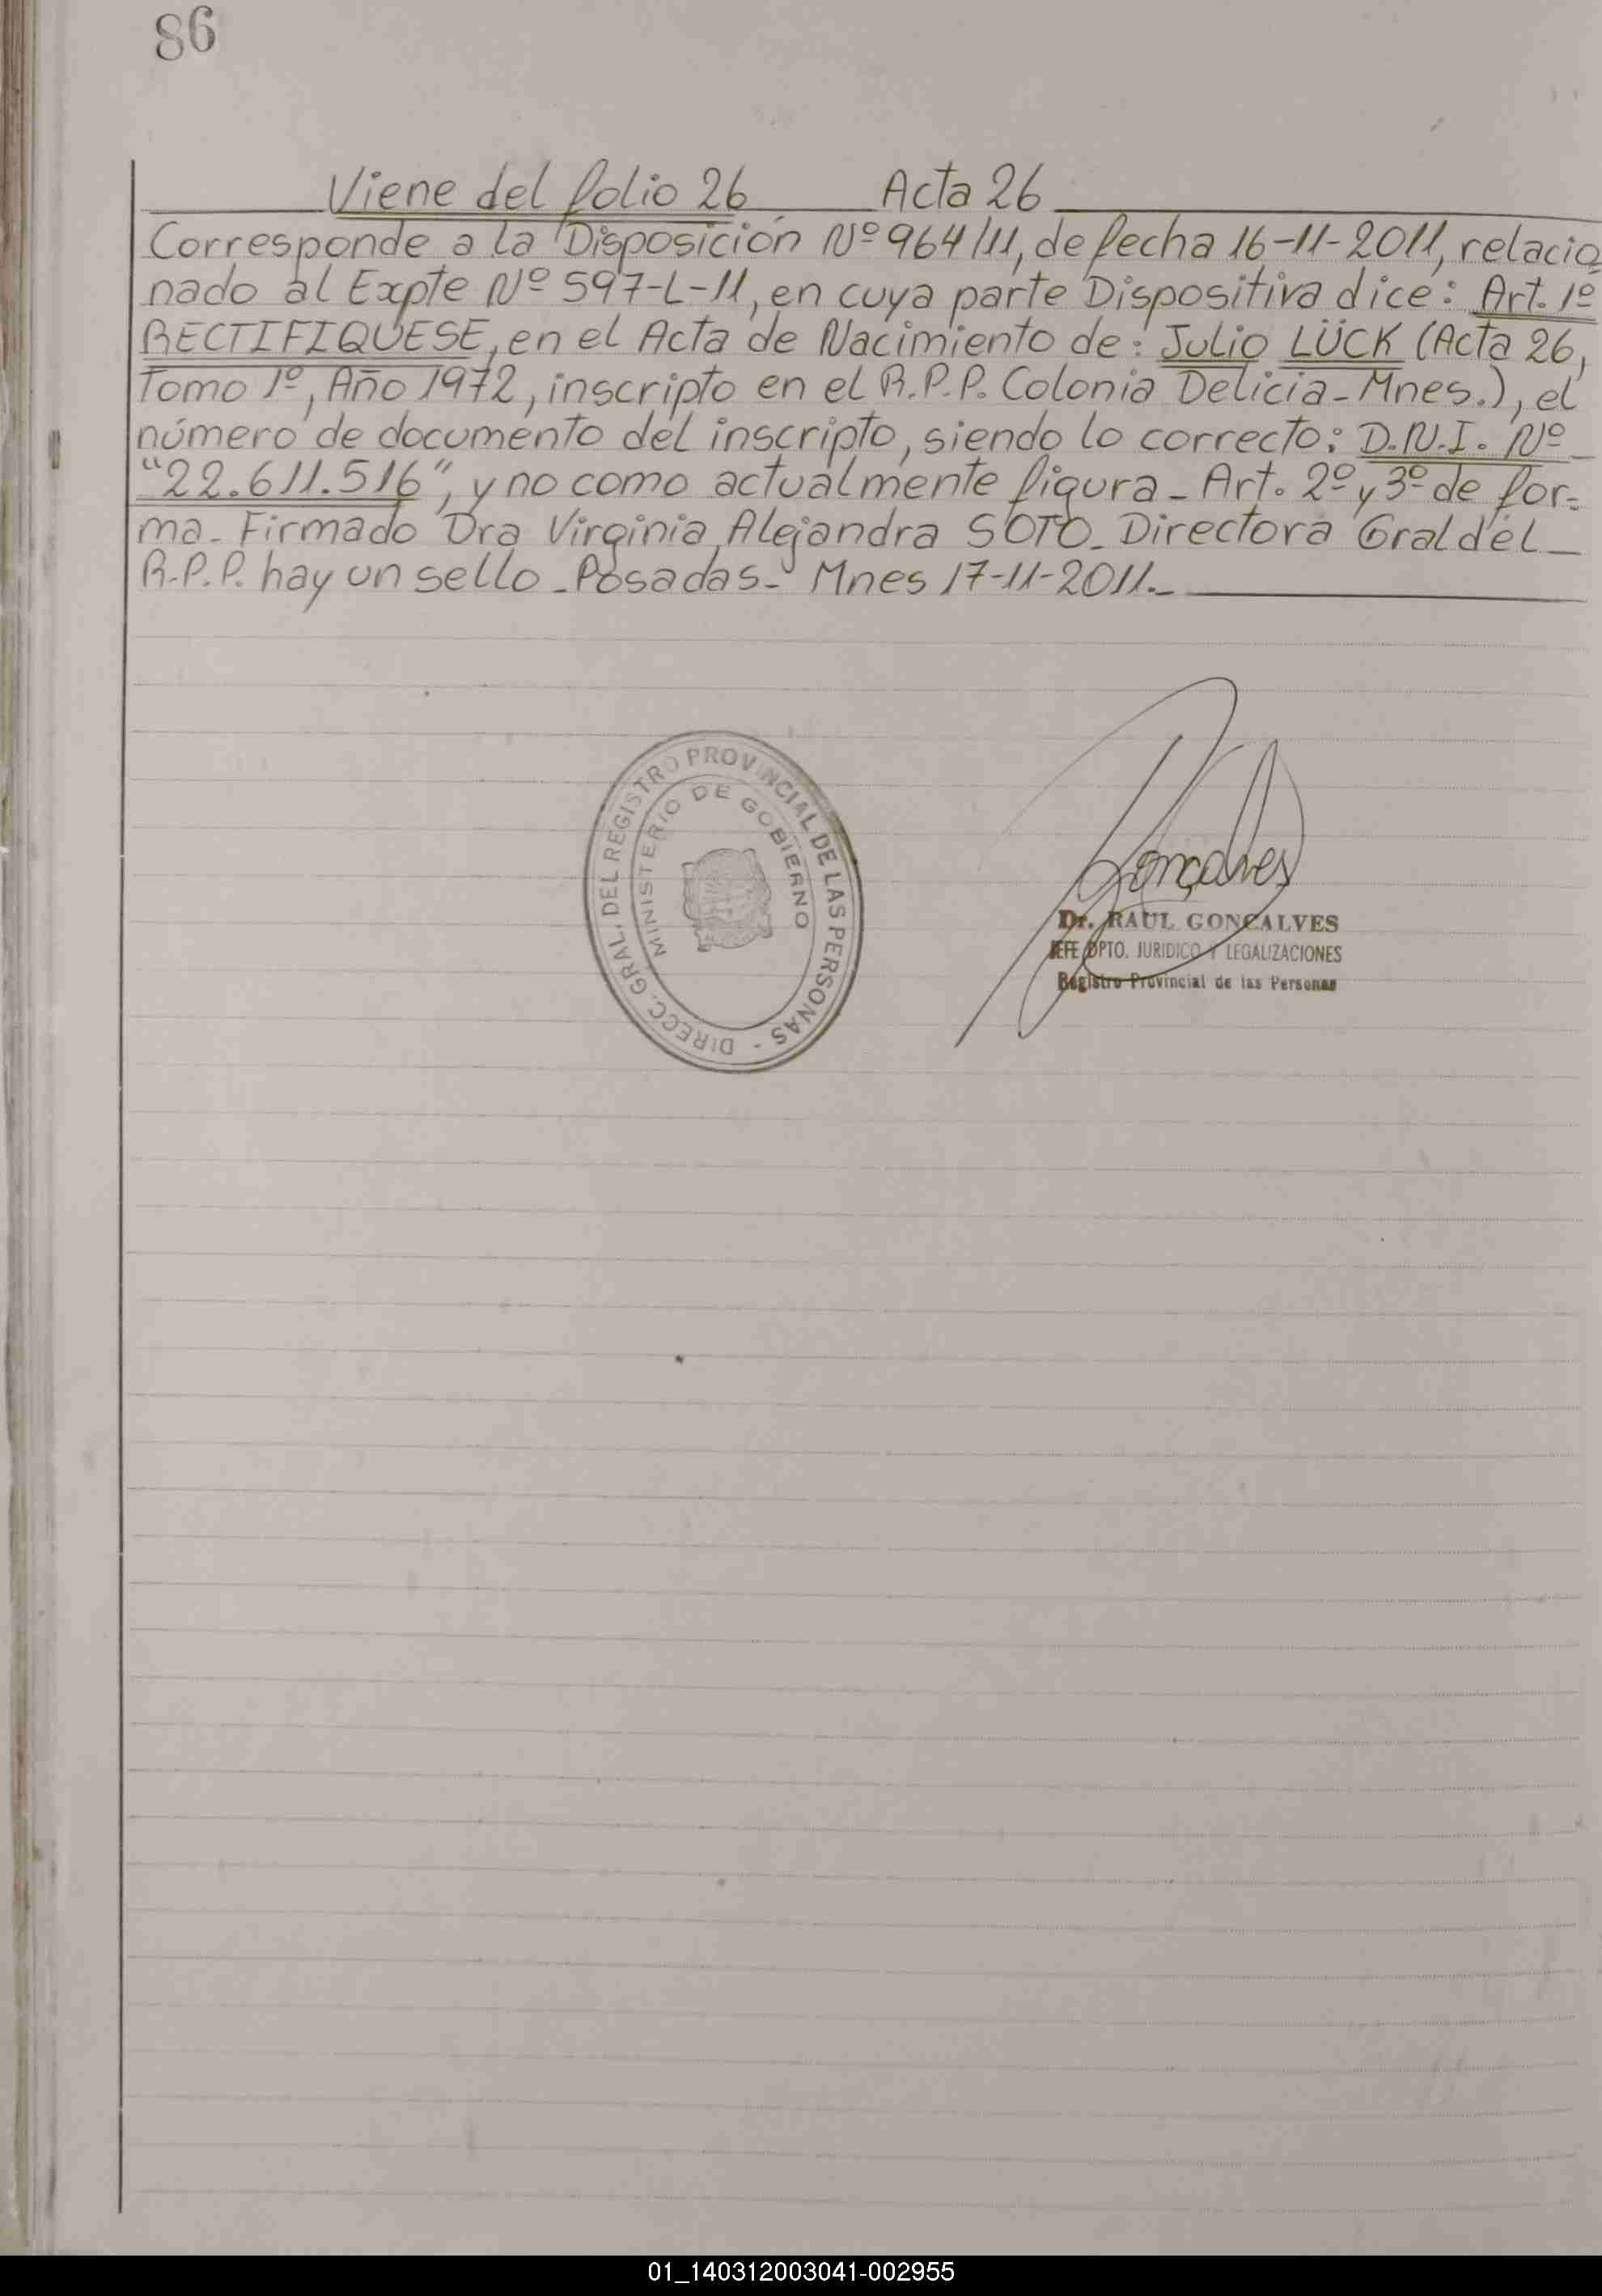 86
Viene del folio 26 Acta 26
Corresponde a la Disposición Nº 964/11, de fecha 16-11-2011, relacio
nado al Expte Nº 597-L-11, en cuya parte Dispositiva dice: Art. 1º
RECTIFIQUESE, en el Acta de Nacimiento de: Julio LÜCK (Acta 26,
Tomo 1º, Año 1972, inscripto en el R.P.P. Colonia Delicia - Mnes.), el
número de documento del inscripto, siendo lo correcto: D.N.I. Nº
"22.611.516", y no como actualmente figura - Art. 2º y 3º de for-
ma - Firmado Dra Virginia Alejandra SOTO - Directora Gral del
R.P.P. hay un sello - Posadas - Mnes 17-11-2011.-
DIRECC. GRAL. DEL REGISTRO PROVINCIAL DE LAS PERSONAS -
MINISTERIO DE GOBIERNO
Gonçalves
Dr. RAUL GONCALVES
JEFE DPTO. JURIDICO Y LEGALIZACIONES
Registro Provincial de las Personas
01_140312003041-002955